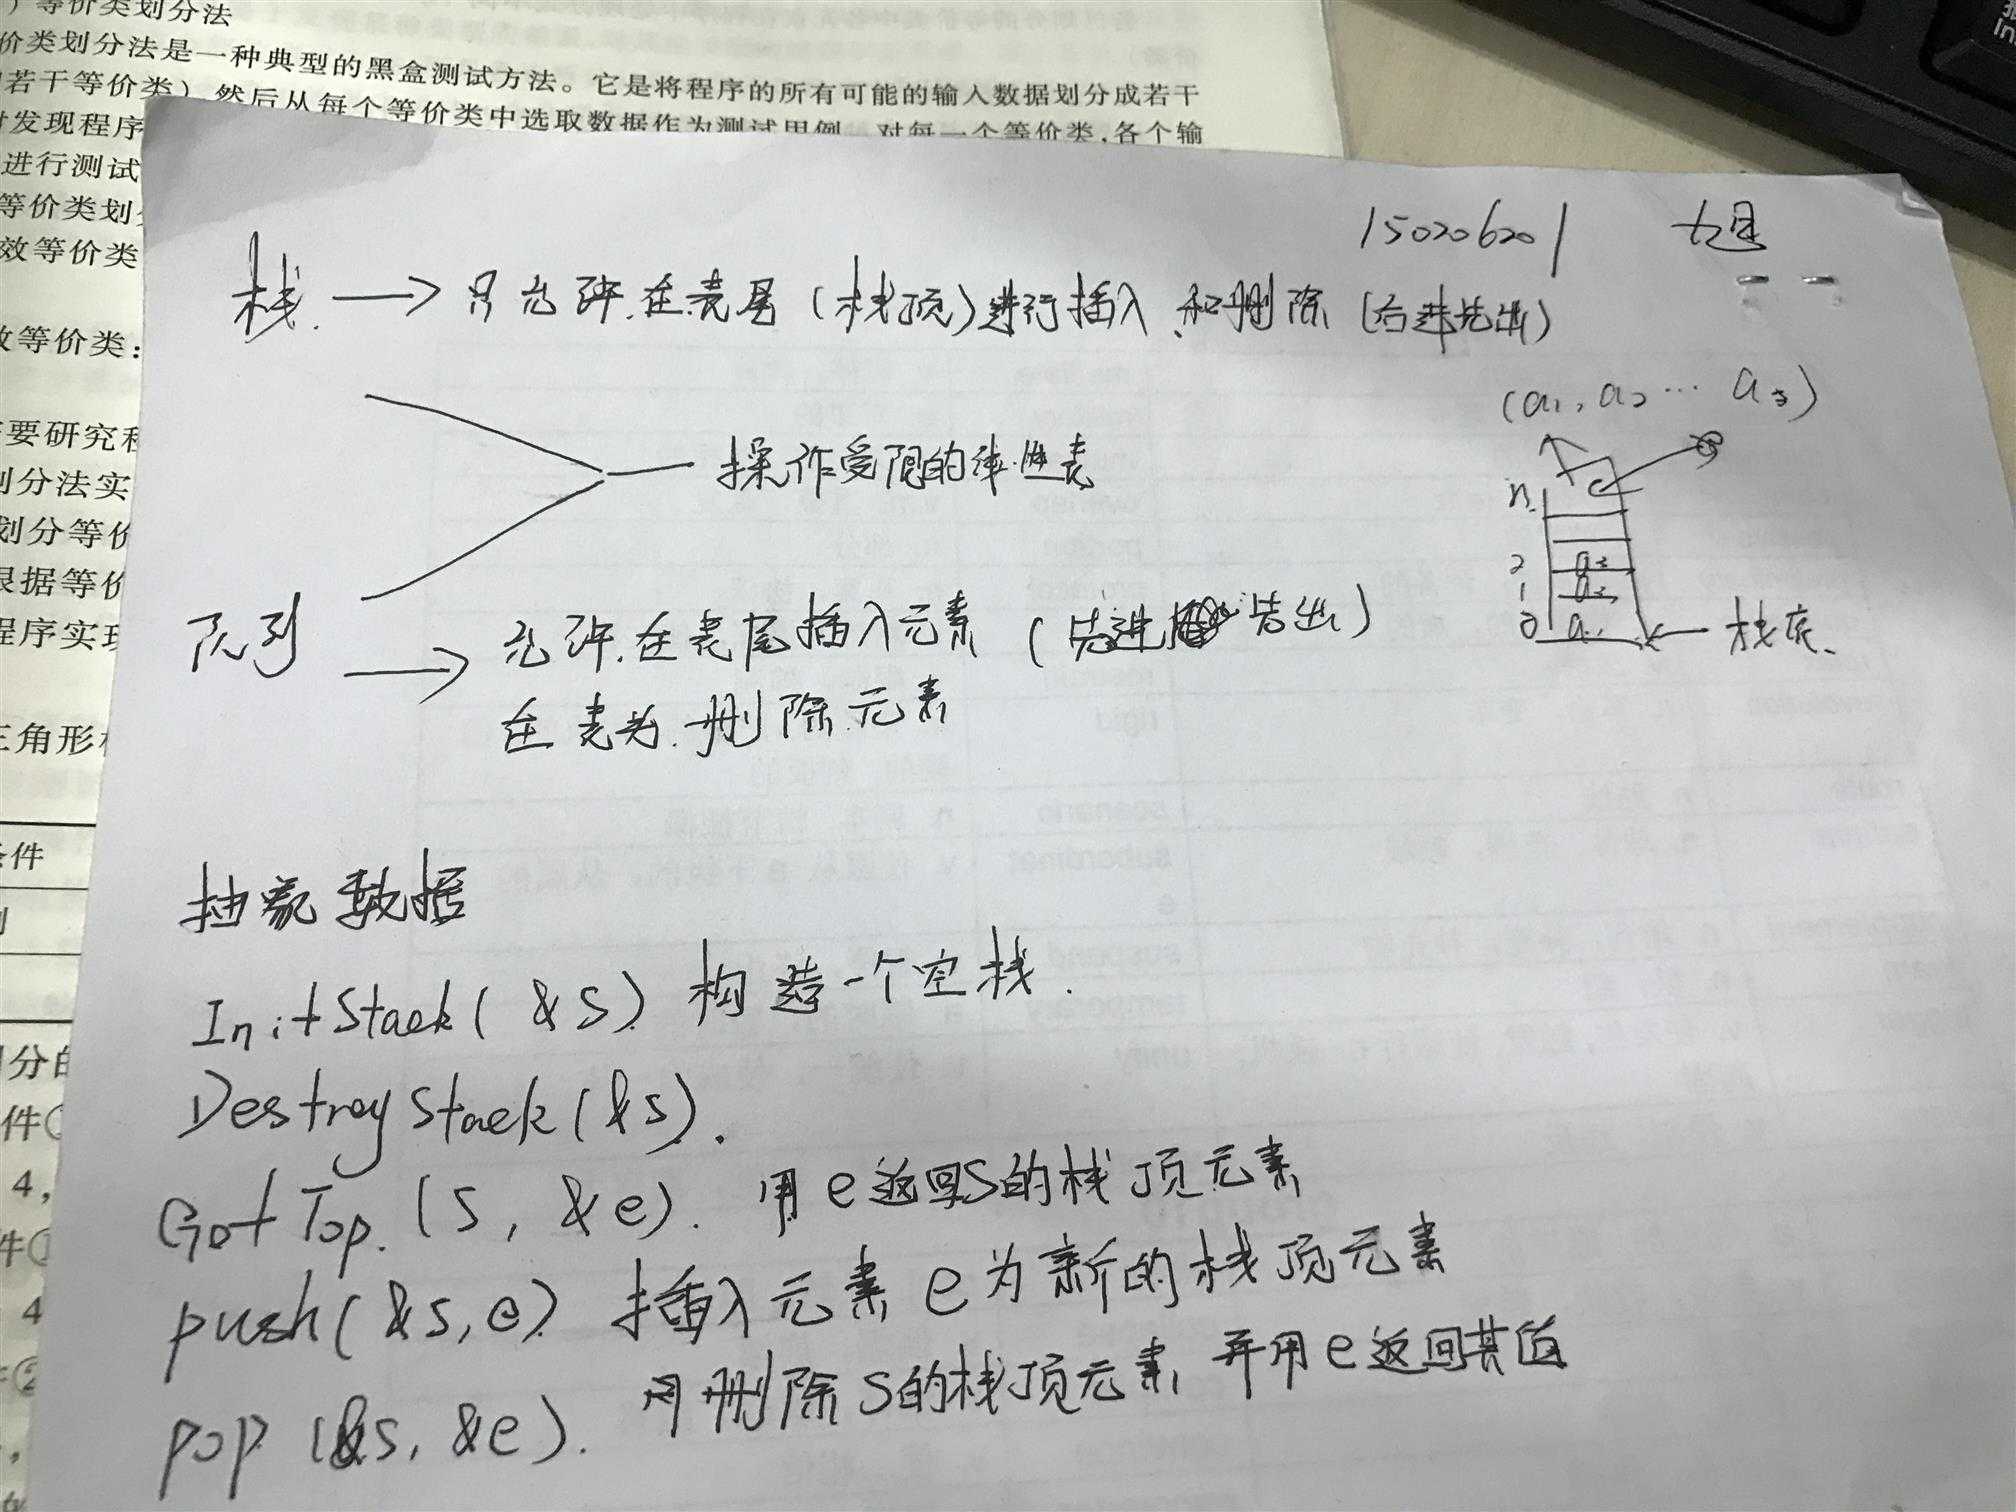 ）等价类划分法
价类划分法是一种典型的黑盒测试方法。它是将程序的所有可能的输入数据划分成若干
若干等价类），然后从每个等价类中选取数据作为测试用例
对每一个等价类，各个输
发现程序
进行测试
等价类划
效等价类
效等价类：
要研究程
划分法实
划分等价
根据等价
程序实现
三角形
条件
划分的
件①
4，
件①
4
②
150206201
栈 → 只允许在表尾（栈顶）进行插入和删除（后进先出）
(a₁, a₂ … a₃)
操作受限的线性表
n
2 a₃
1 a₂
0 a₁ ← 栈底
队列 → 允许在表尾插入元素（先进先出）
在表头删除元素
抽象数据
InitStack(&S) 构造一个空栈.
DestroyStack(&s).
GetTop.(S, &e). 用e返回S的栈顶元素
push(&s,e) 插入元素e为新的栈顶元素
pop(&s, &e). 删除S的栈顶元素，并用e返回其值